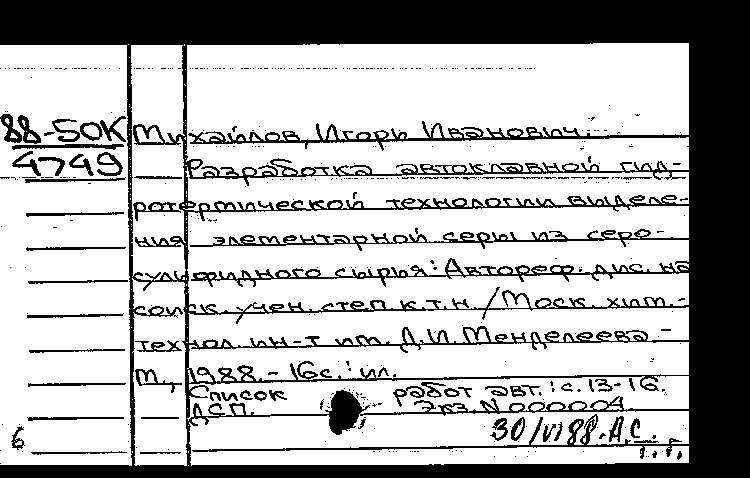 88-50К Михайлов, Игорь Иванович.
4749 Разработка автоклавной гид-
ротермической технологии выделе-
ния элементарной серы из серо-
сульфидного сырья: Автореф. дис. на
соиск. учен. степ. к.т.н. /Моск. хим.-
технол. ин-т им. Д.И. Менделеева.-
М., 1988.- 16с.: ил.
Список работ авт.: с. 13-16.
ДСП. Экз. N 000004.
6 30/VI 88. А.С.